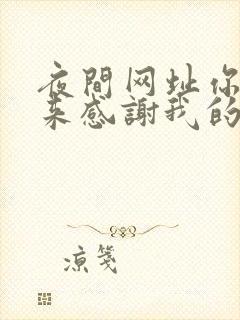 夜間网址你
来感謝我的
凉笺